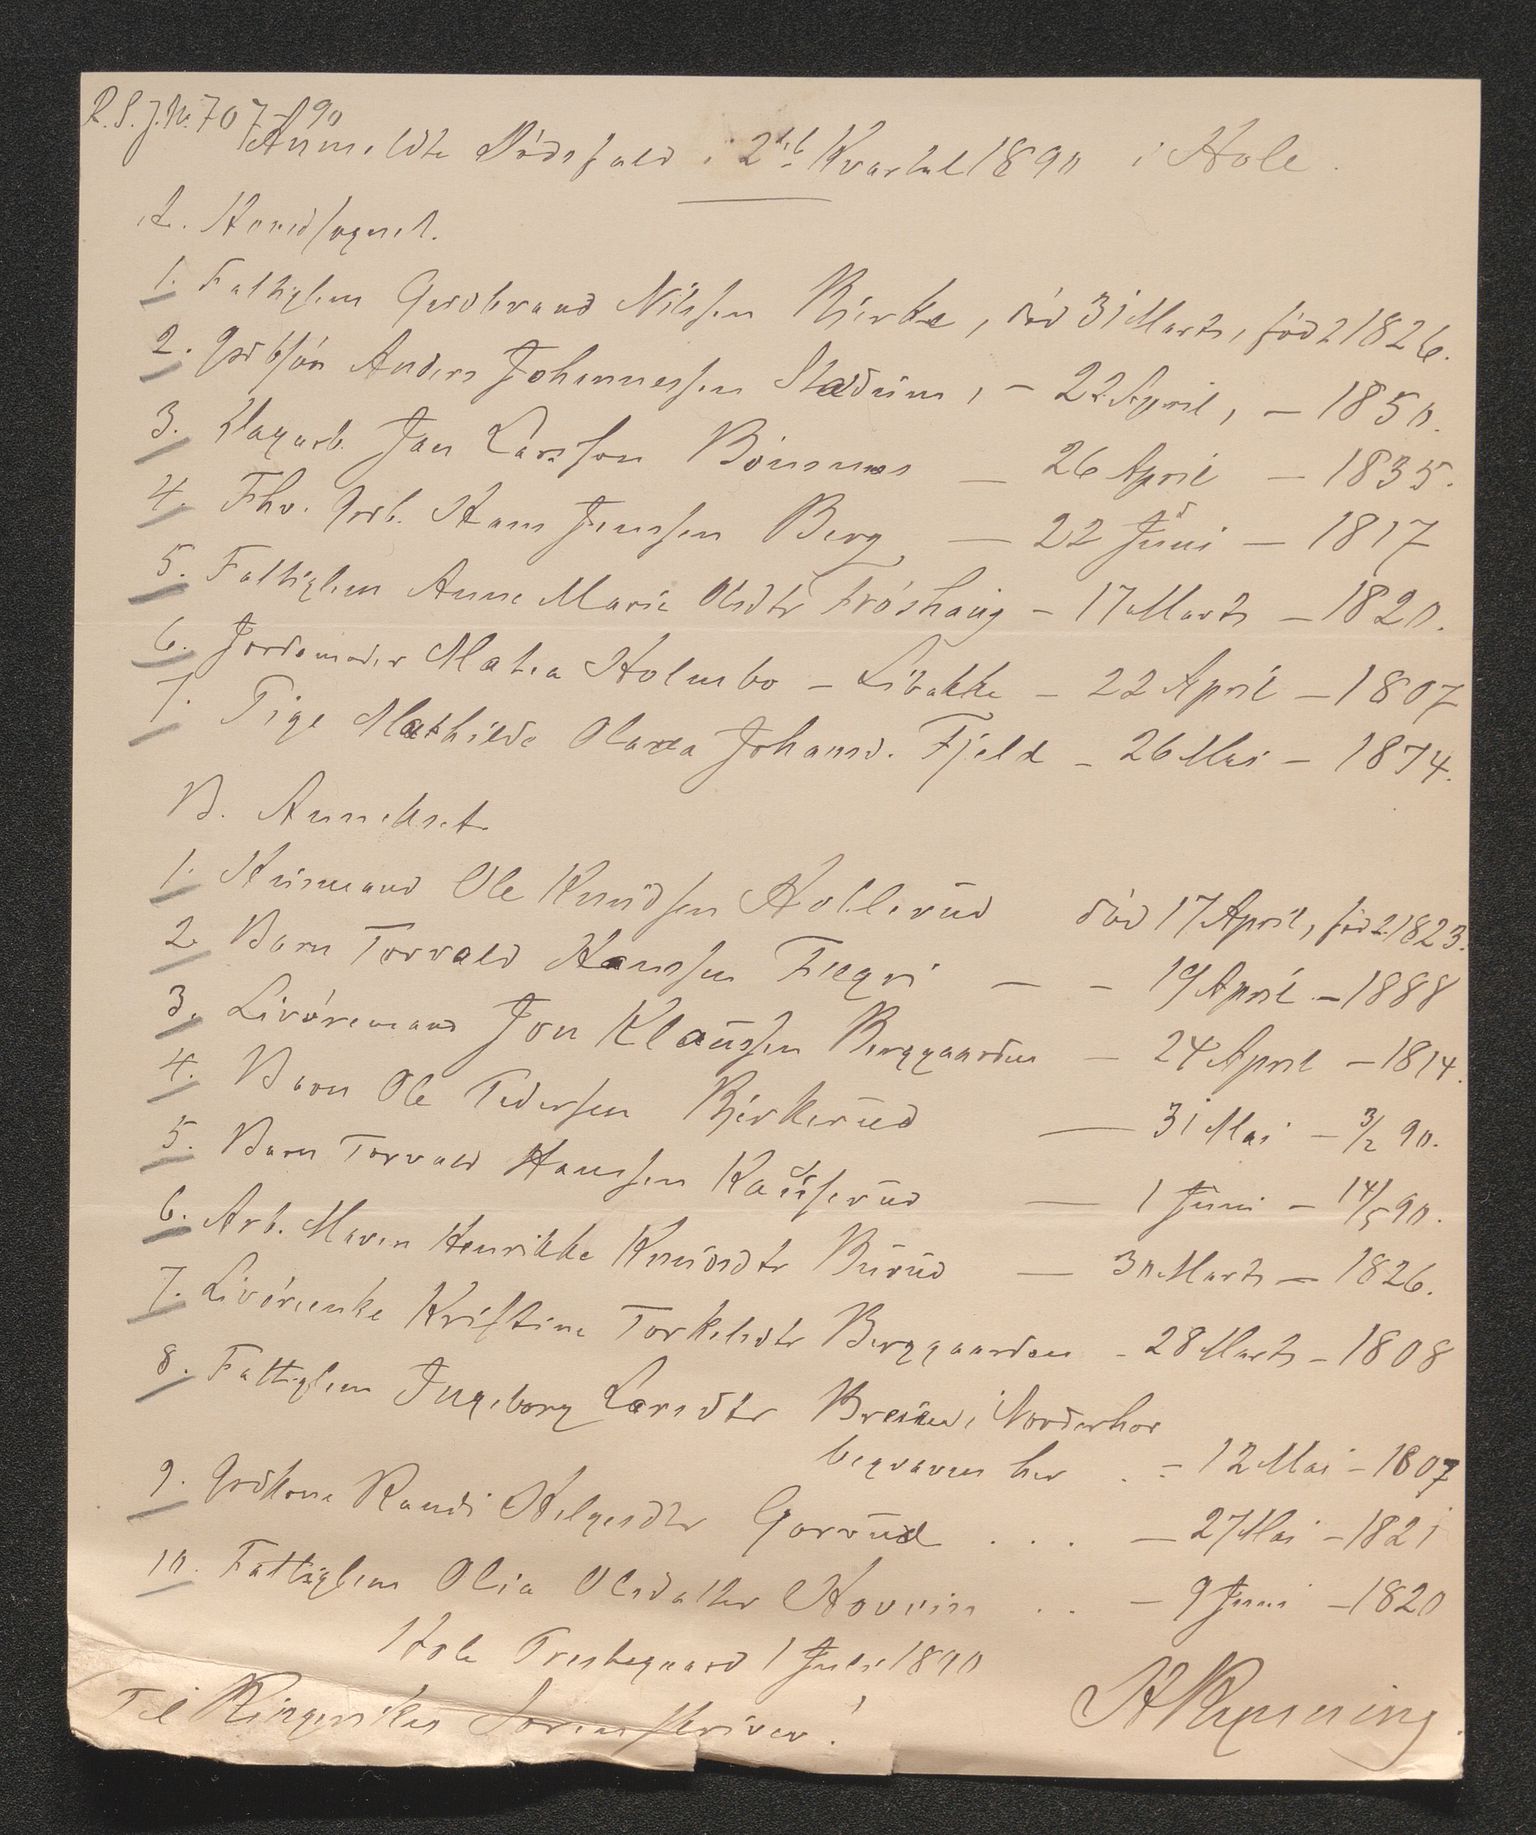 R. S. J. Nr. 707-90
Anmeldte Dødsfald i 2det Kvartal 1890 i Hole.
A. Hovedsognet.
1. Fattiglem Guldbrand Nilssen Bjerke, død 31 Marts, født 1826.
2. Anders Johannessen Stadum, - 22 April, - 1850.
3. Dagarb. Jan Larsson Bönsnes - 26 April - 1835.
4. Fhv. Grb. Hans Jenssen Berg - 22 Juni - 1817
5. Fattiglem Anne Marie Olsdtr Fröshaug - 17 Marts - 1820.
6. Jordemoder Matea Holmbo - Libakke - 22 April - 1807
7. Pige Mathilde Olava Johansd. Fjeld - 26 Mai - 1874.
B. Annekset
1. Husmand Ole Knudsen Hollerud død 17 April, født 1823.
2. Barn Torvald Hanssen Fægri - - 19 April - 1888
3. Livöremand Jon Klaussen Berggaarden - 24 April - 1814.
4. Barn Ole Pedersen Bjerkerud - 31 Mai - 3/2 90.
5. Barn Torvald Hanssen - 1 Juni - 14/5 90.
6. Arb. Maren Henrikke Knudsdtr Burud - 30 Marts - 1826.
7. Livörenke Kristine Torkelsdtr Berggaarden - 28 Marts - 1808
8. Fattiglem Ingeborg Larsdtr i Norderhov
begraven her . - 12 Mai - 1807
9. Grdkone Randi Helgesdtr Garvud . . . - 27 Mai - 1821
10. Fattiglem Olia Olsdatter . . - 9 Juni - 1820
Hole Prestegaard 1 Juli 1890
Til Ringerikes Sorenskriver!